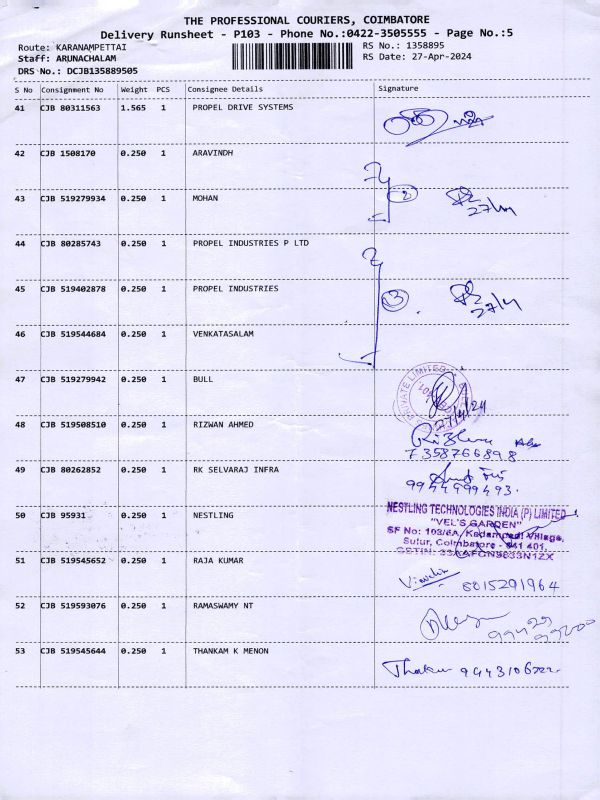 THE PROFESSIONAL COURIERS, COIMBATORE
Delivery Runsheet - P103 - Phone No.:0422-3505555 - Page No.:5
Route: KARANAMPETTAI RS No.: 1358895
Staff: ARUNACHALAM RS Date: 27-Apr-2024
DRS No.: DCJB135889505
S No Consignment No Weight PCS Consignee Details Signature
41 CJB 80311563 1.565 1 PROPEL DRIVE SYSTEMS
42 CJB 1508170 0.250 1 ARAVINDH
43 CJB 519279934 0.250 1 MOHAN 2
27/4
44 CJB 80285743 0.250 1 PROPEL INDUSTRIES P LTD
45 CJB 519402878 0.250 1 PROPEL INDUSTRIES 3
27/4
46 CJB 519544684 0.250 1 VENKATASALAM
47 CJB 519279942 0.250 1 BULL PRIVATE LIMITED
27/4/24
48 CJB 519508510 0.250 1 RIZWAN AHMED
7358766898
49 CJB 80262852 0.250 1 RK SELVARAJ INFRA
9944999493.
50 CJB 95931 0.250 1 NESTLING NESTLING TECHNOLOGIES INDIA (P) LIMITED
"VEL'S GARDEN"
SF No: 103/6A, Kadampadi Village,
Sulur, Coimbatore - 641 401.
51 CJB 519545652 0.250 1 RAJA KUMAR 8015291964
52 CJB 519593076 0.250 1 RAMASWAMY NT
53 CJB 519545644 0.250 1 THANKAM K MENON